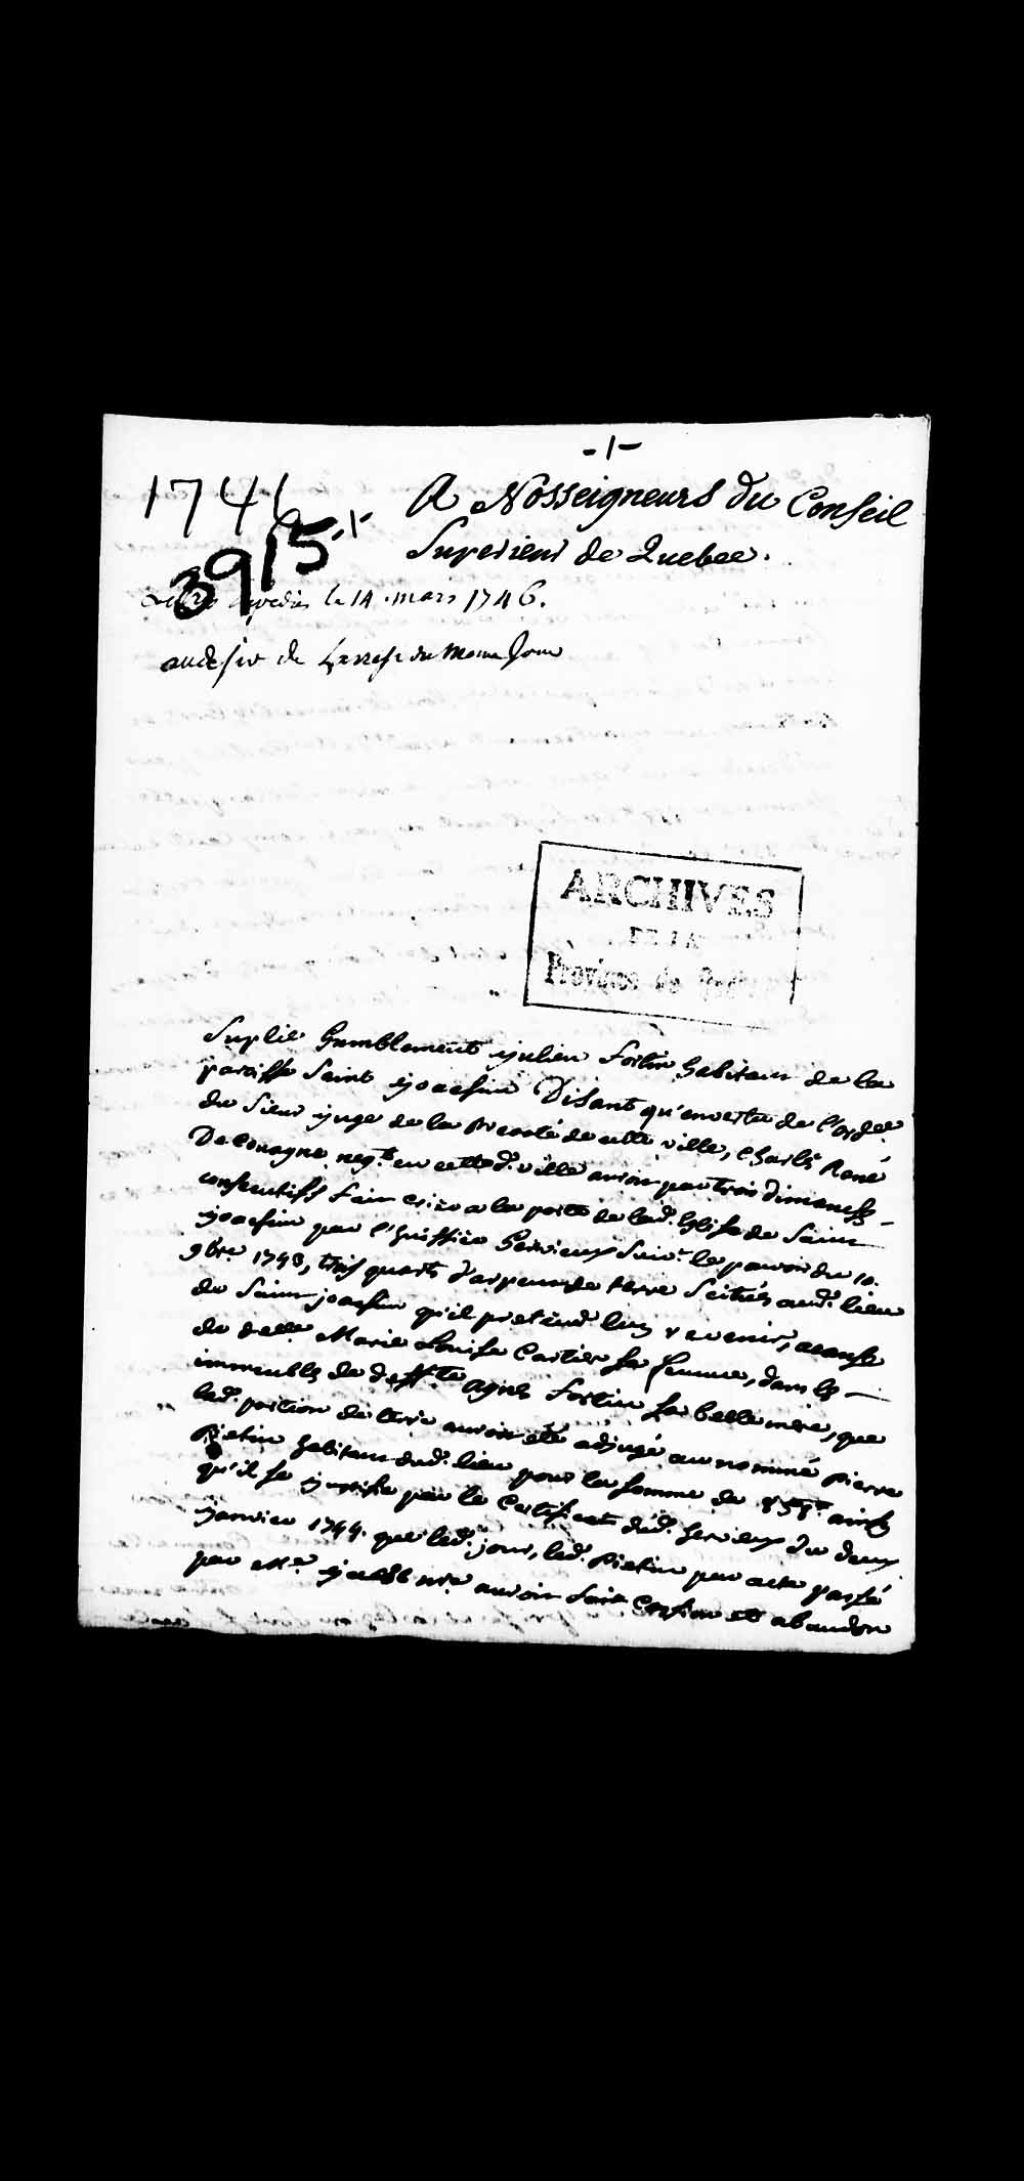 -1-
1746
A Nosseigneurs du Conseil
3915 -1-
Superieur de Quebec.
le 14 mars 1746.
au desir de L'arrest du mesme Jour
ARCHIVES
DE LA
Province de
Suplie humblement jullien fortin habitant de la
paroisse Saint joachim Disant qu'en vertu de l'ordce
du Sieur juge de la Prevoté de cette ville, Charles René
De Couagne negt. en cette d. ville auroit par trois dimanches
consecutifs fait crier a la porte de lad. Eglise de Saint
joachim par l'huissier Gervieux Suivt. le pouvoir du 10.
9bre. 1743, trois quarts d'arpens de terre Scitués aud. lieu
de Saint joachim qu'il pretend luy revenir, acause
de delle Marie Louise Cartier sa femme, dans les
immeubles de deffte. Agnes fortin sa belle mere, que
lad. portion de terre auroit eté adjugé au nommé Pierre
habitant dud. lieu pour la somme de ainsy
qu'il se justifie par le Certificat dud. Gervieux du deux
janvier 1744. que led. jour, led. par acte passé
par Me. nre auroit fait Cession et abandon